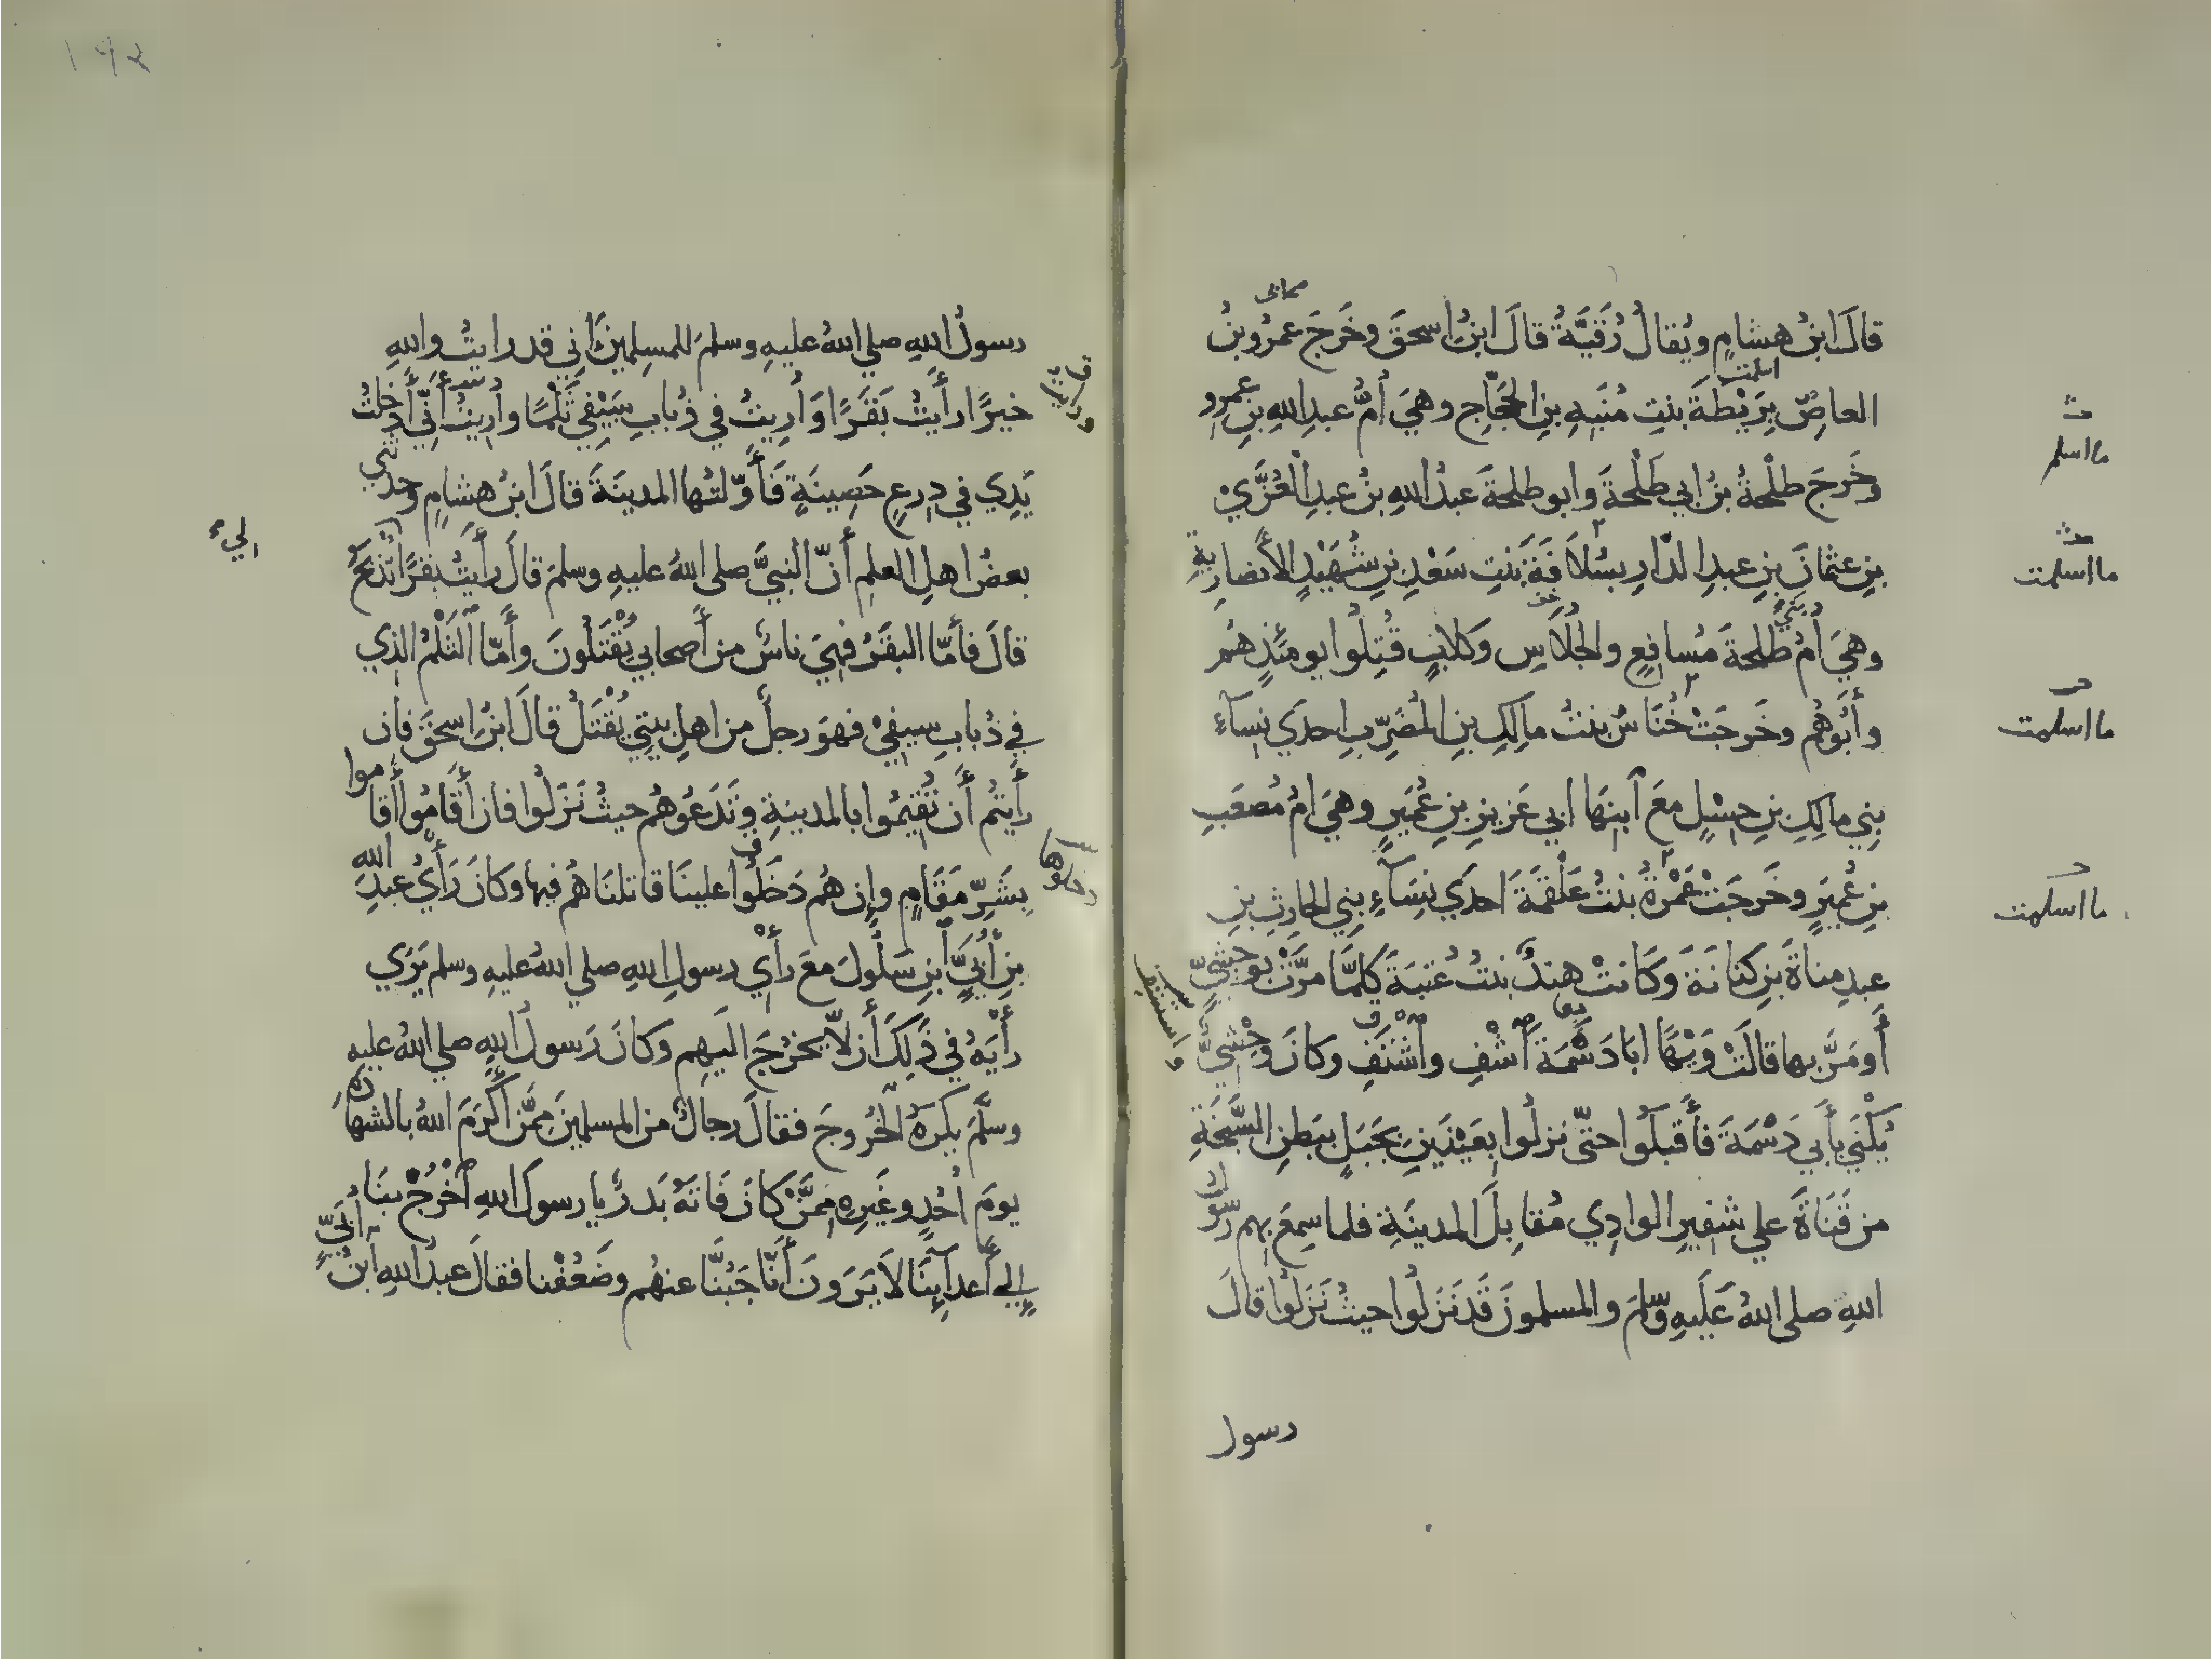 صحابي
قالَ ابنُ هشامٍ ويُقالُ رُقَيَّةُ قالَ ابنُ اسحقَ وخَرَجَ عمرُو بنُ
اسلمت
العاصِ بِرَيْطَةَ بنتِ مُنَبِهِ بنِ الحَجّاجِ وهيَ أُمُّ عبدِ اللهِ بنِ عمرٍو
ما اسلم
وخَرجَ طلْحةُ بنُ ابي طَلْحةَ وابو طلحةَ عبدُ اللهِ بنُ عبدِ العُزَّيْ
بنِ عثمانَ بنِ عبدِ الدّارِ بسُلاَفَةَ بنتِ سَعْدِ بنِ شُهَيْدٍ الأنصارِيةِ
ما اسلمت
وهيَ أُمُّ بَنيْ طلحةَ مُسافِعٍ والجُلاَسِ وكلابٍ قُتِلُوا يومئذٍ هُمْ
وأَبُوهُم وخَرجَتْ خُنَاسُ بنتُ مالِكِ بنِ المُضَرِّبِ احدَي نِسآءِ
ما اسلمت
بنِي مالِكِ بنِ حِسْلٍ معَ ٱبنِهَا ابي عَزيزِ بنِ عُمَيرٍ وهيَ امُّ مُصعَبِ
بنِ عُمَيرٍ وخَرجَتْ عَمْرةُ بنتُ عَلْقمَةَ احدَي نِسَآءِ بنِي الحارِثِ بنِ
ما اسلمت
عبدِ مناةَ بنِ كنانَةَ وكَانتْ هِندٌ بنتُ عُتبَةَ كلمَّا مرَّتْ بوحشيٍّ
أَو مَرَّ بها قالَتْ وَيْهًا ابَا دَسْمَةَ ٱشْفِ وٱشْتَفِ وكانَ وحْشِيٌّ
واستشف
يُكْنَي بأَبي دَسْمَةَ فأَقبلُوا حتّى نزلُوا بِعَيْنَينِ بجَبَلٍ ببَطنِ السَّبَخَةِ
من قَنَاةَ علي شفِيرِ الوادِي مُقابِلَ المدينَةِ فلما سمِعَ بهِم رسُولُ
اللهِ صلى اللهُ عَلَيهِ وسّلَمَ والمسلمونَ قَد نَزلُوا حيثُ نَزلُوا قالَ
رسول
رسولُ اللهِ صلي اللهُ عليهِ وسلمَ للمسلِمينَ اني قد رايتُ واللهِ
خيرًا رأَيتُ بَقَرًا وَأُرِيتُ في ذُبابِ سَيْفِي ثَلْمًا وأُرِيتُ أَنِّي أَدخلتُ
يَدِي في دِرعٍ حَصِينَةٍ فَأَوّلتُها المدينَةَ قالَ ابنُ هشامٍ وحدثني
بعضُ اهلِ العلمِ أنّ النبيَّ صلى اللهُ عليهِ وسلمَ قالَ رأَيتُ بقرًا تُذبَحُ
لي
قالَ فأَمّا البقَرُ فهيَ ناسٌ من أَصحابي يُقْتَلُونَ وأَمّا ٱلثَلْمُ الذي
في ذُبابِ سيفِيْ فهوَ رجلٌ من اهلِ بيتِي يُقْتَلُ قالَ ابنُ اسحقَ فان
رأَيتُم أَن تُقيمُوا بالمدينةِ وتَدَعُوهُم حيثُ نَزلُوا فان أَقَامُوا أَقاموا
بِشَرِّ مَقَامٍ وإِن هُم دَخَلُوا علينَا قاتلنَاهُم فيها وكانَ رَأْيُ عبدِ اللهِ
بنِ أُبَيٍّ ٱبنِ سَلُولَ معَ رأْيِ رسولِ اللهِ صلي اللهُ عليهِ وسلم يَرَي
رأْيَهُ في ذَلِكَ أَن لاّ يخرُجَ اليهِم وكانَ رَسولُ اللهِ صلي اللهُ عليهِ
وسلَّمَ يكرَهُ ٱلخُروجَ فقالَ رجالٌ من المسلمِينَ مِمَّن أَكرَمَ اللهُ بالشهادةِ
يومَ أُحُدٍ وغَيرِهِ مِمَّنْ كانَ فَاتَهُ بَدرٌ يا رسولَ اللهِ ٱخْرُجْ بنَا
إِلي أَعدآئِنَا لاَ يَرَونَ أَنَّا جَبُنَّا عنهُم وضَعُفْنا فقالَ عبدُ اللهِ ٱبنُ أُبَيٍّ